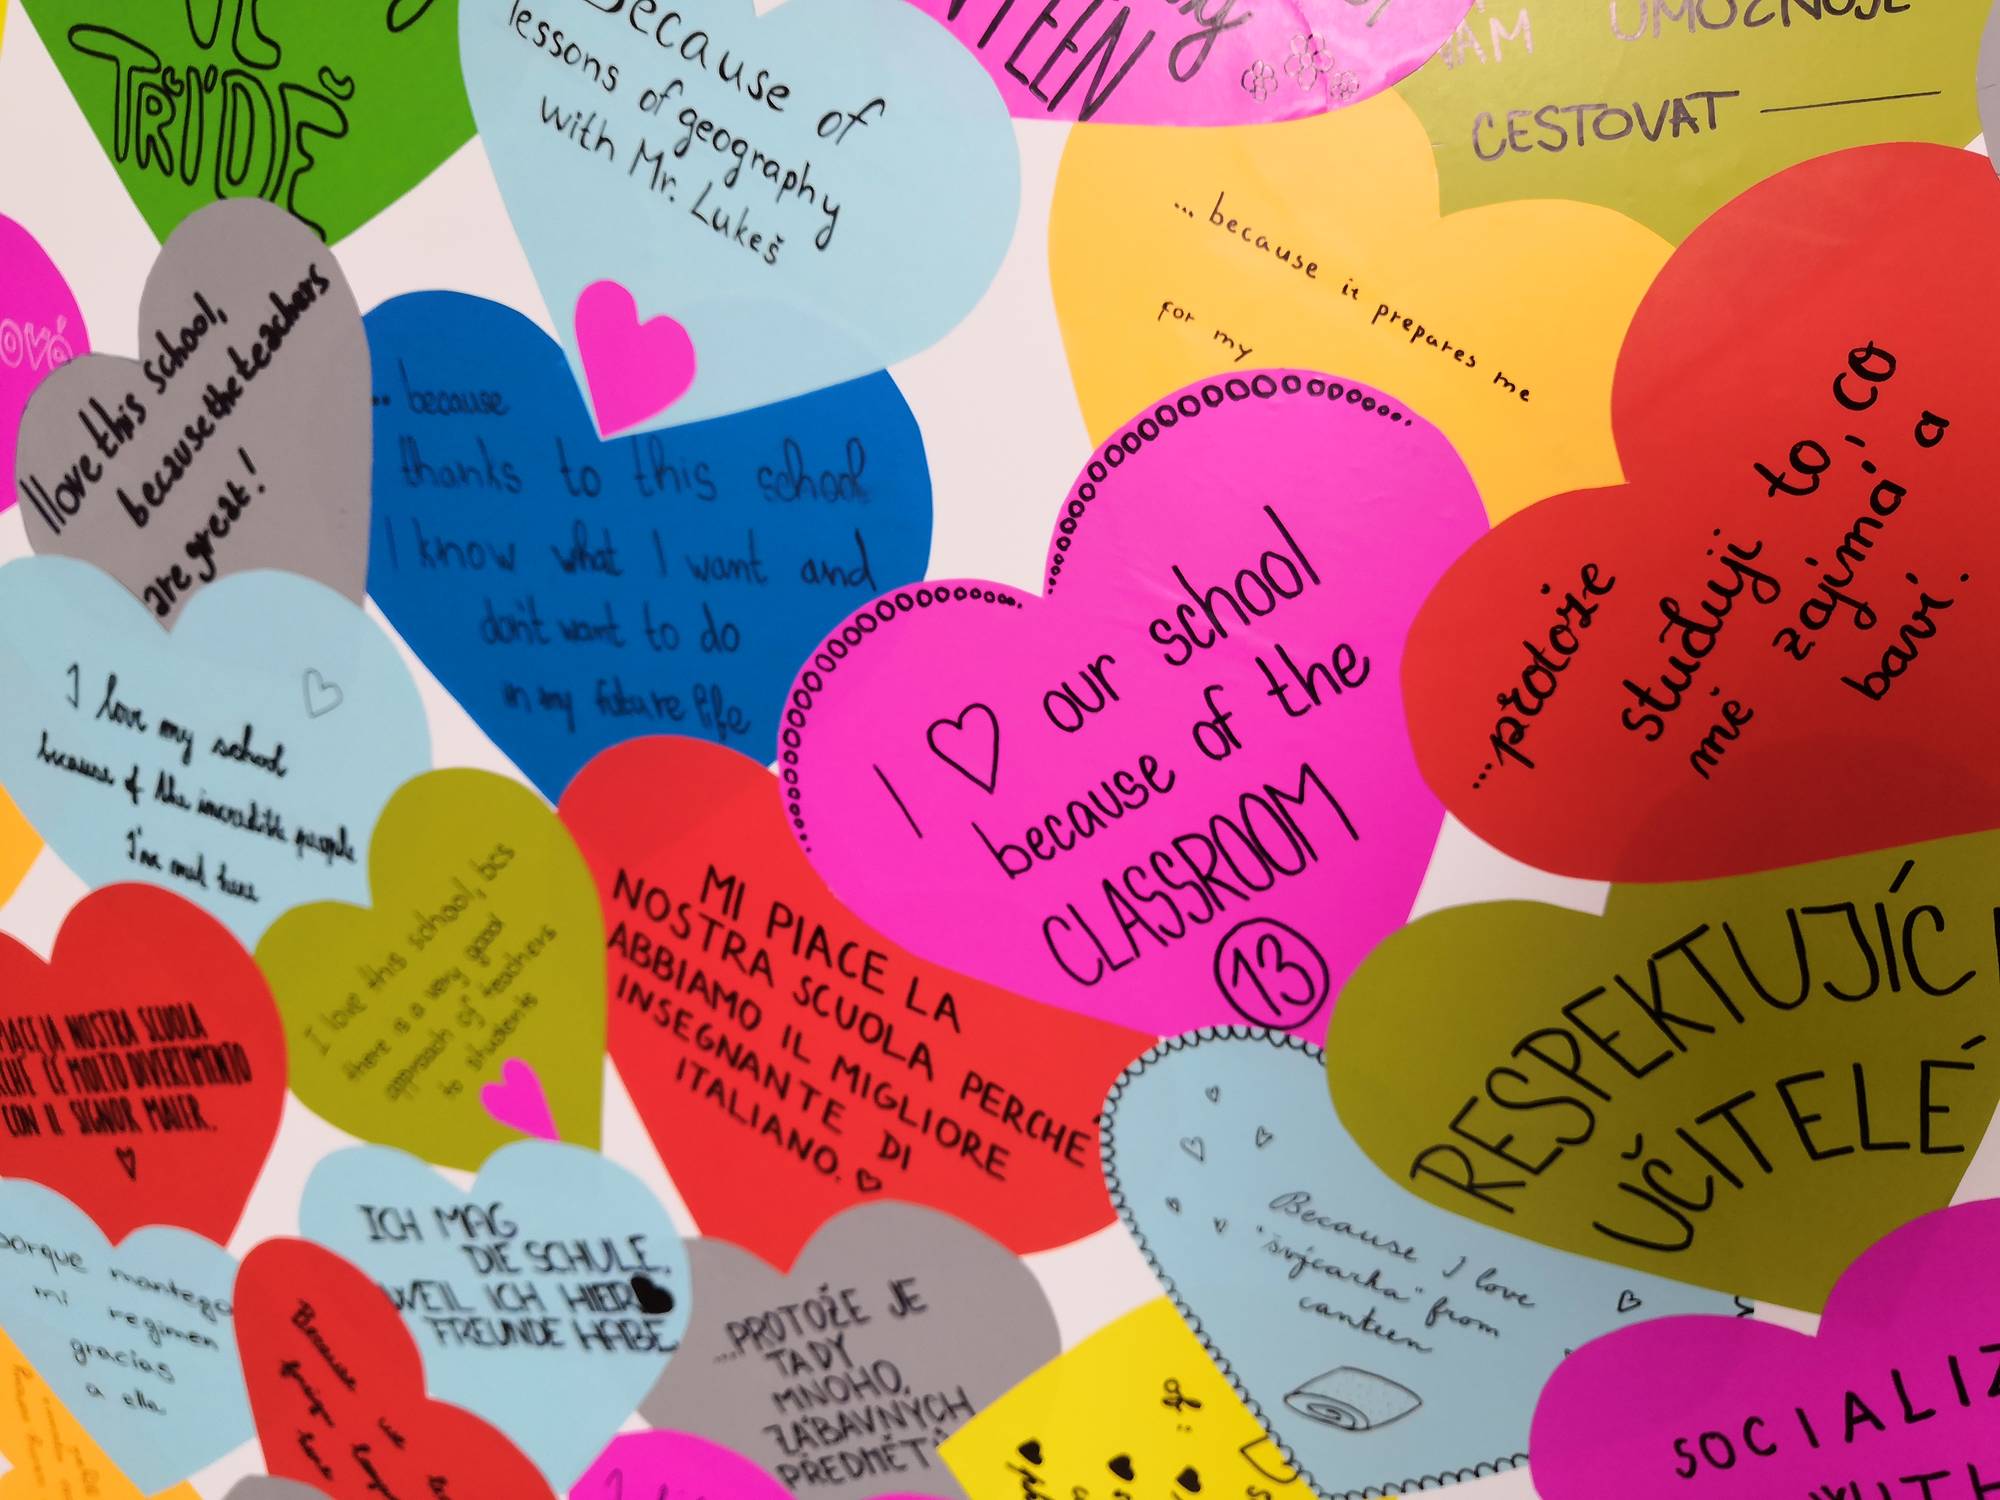 VE
TŘÍDĚ
Because of
lessons of geography
with Mr. Lukeš
UMOŽŇUJE
CESTOVAT
... because it prepares me
for my
I love this school,
because the teachers
are great!
... because
thanks to this school
I know what I want and
don't want to do
in my future life
I ♡ our school
because of the
CLASSROOM
13
...protože
studuji to, co
mě zajímá a
baví.
I love my school
because of the incredible people
I've met here
I love this school, bcs
there is a very good
approach of teachers
to students
MI PIACE LA
NOSTRA SCUOLA PERCHE
ABBIAMO IL MIGLIORE
INSEGNANTE DI
ITALIANO. ♡
RESPEKTUJÍC
UČITELÉ
PIACE LA NOSTRA SCUOLA
C'É MOLTO DIVERTIMENTO
CON IL SIGNOR MAIER.
ICH MAG
DIE SCHULE,
WEIL ICH HIER
FREUNDE HABE
porque mantengo
mi regimen
gracias
a ella
...PROTOŽE JE
TADY
MNOHO
ZÁBAVNÝCH
PŘEDMĚT
Because I love
"švýcarka" from
canteen
Because
we
SOCIALIZ